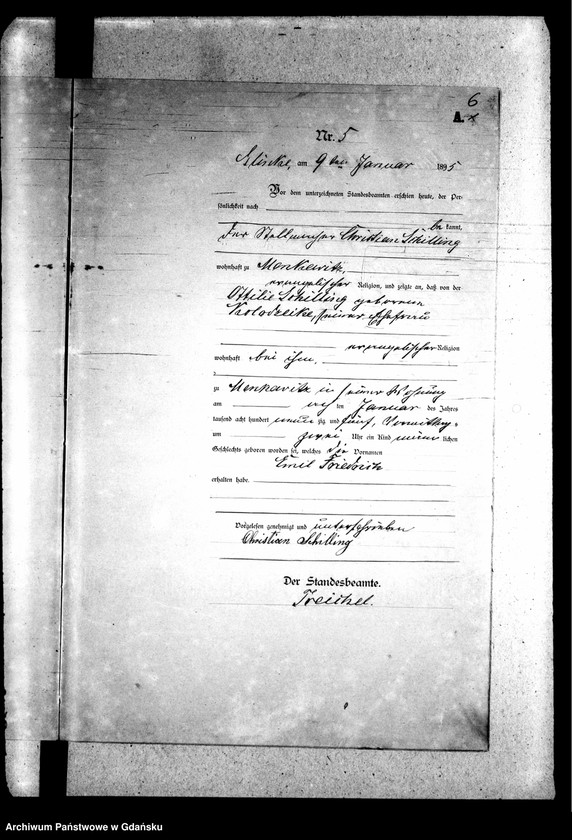 6
A.
Nr. 5
am 9 ten Januar 1895
Vor dem unterzeichneten Standesbeamten erschien heute, der Per-
sönlichkeit nach
be kannt,
der Christian Schilling
wohnhaft zu Menkewitz,
evangelischer Religion, und zeigte an, daß von der
Ottilie Schilling geborenen
seiner Ehefrau
evangelischer Religion
wohnhaft bei ihm.
zu Menkawitz in seiner Wohnung
am ten Januar des Jahres
tausend acht hundert neun zig und fünf, Vormittags
um zwei Uhr ein Kind männ lichen
Geschlechts geboren worden sei, welches die Vornamen
Emil Friedrich
erhalten habe.
Vorgelesen, genehmigt und unterschrieben
Christian Schilling
Der Standesbeamte.
Treichel.
Archiwum Państwowe w Gdańsku